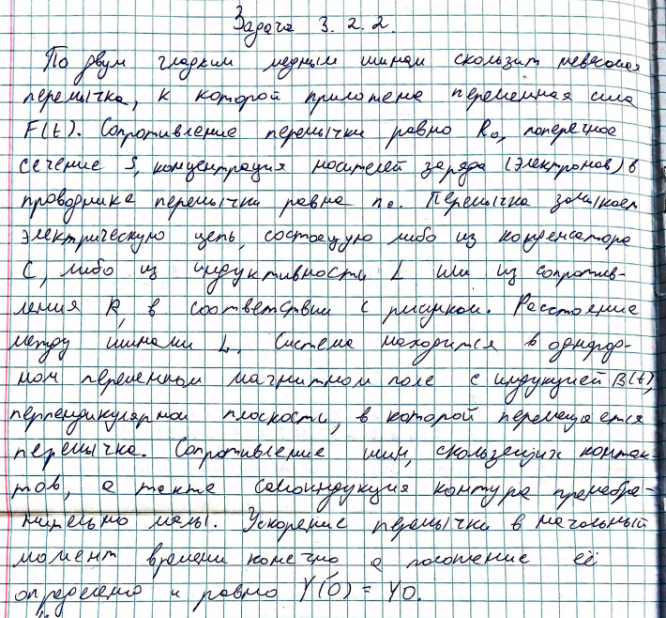 Задача 3.2.2.
По двум гладким медным шинам скользит невесомая
перемычка, к которой приложена переменная сила
F(t). Сопротивление перемычки равно R₀, поперечное
сечение S, концентрация носителей заряда (электронов) в
проводнике перемычки равна n₀. Перемычка замыкает
электрическую цепь, состоящую либо из конденсатора
C, либо из индуктивности L или из сопротив-
ления R, в соответствии с рисунком. Расстояние
между шинами L. Система находится в однород-
ном переменном магнитном поле с индукцией B(t),
перпендикулярной плоскости, в которой перемещается
перемычка. Сопротивление шин, скользящих контак-
тов, а также самоиндукция контура пренебре-
жительно малы. Ускорение перемычки в начальный
момент времени конечно а положение её
определено и равно Y(0) = Y0.